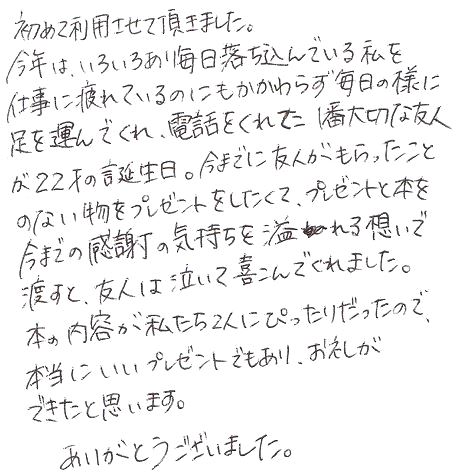 初めて利用させて頂きました。
今年は、いろいろあり毎日落ち込んでいる私を
仕事に疲れているのにもかかわらず毎日の様に
足を運んでくれ、電話をくれた1番大切な友人
が22才の誕生日。今までに友人がもらったこと
のない物をプレゼントをしたくて、プレゼントと本を
今までの感謝の気持ちを溢れる想いで
渡すと、友人は泣いて喜こんでくれました。
本の内容が私たち2人にぴったりだったので、
本当にいいプレゼントでもあり、お礼しが
できたと思います。
ありがとうございました。